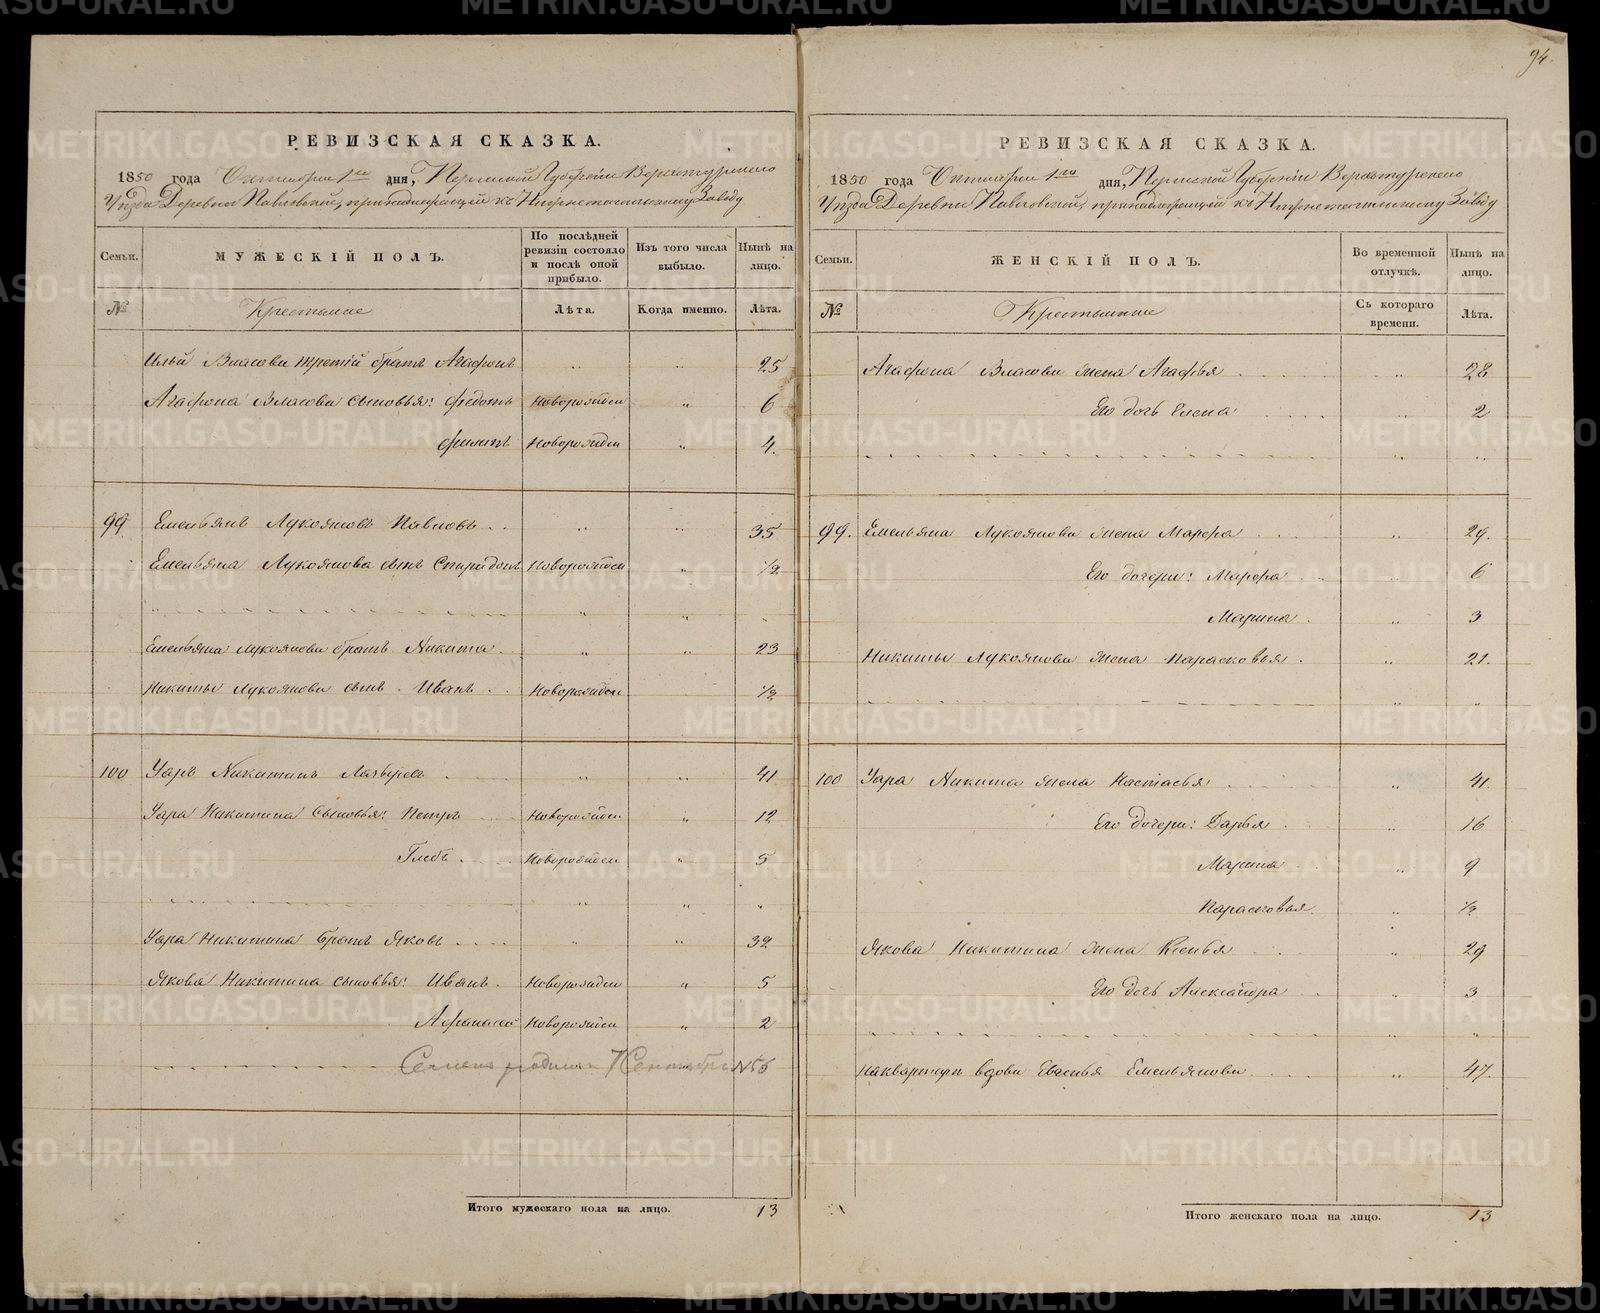 94.
РЕВИЗСКАЯ СКАЗКА.
1850 года Октября 1го дня, Пермской Губернiи Верхотурскаго
Уѣзда Деревни Павловской, принадлежащей къ Нижнетагильскому Заводу
Семьи. МУЖЕСКIЙ ПОЛЪ. По послѣдней ревизiи состояло и послѣ оной прибыло. Изъ того числа выбыло. Нынѣ на лицо.
№ Крестьяне Лѣта. Когда именно. Лѣта.
Ильи Власова третiй братъ Агафонъ " " 25
Агафона Власова сыновья: Федотъ Новорожден " 6
Филипъ Новорожден " 4.
99. Емельянъ Лукояновъ " " 35
Емельяна Лукоянова сынъ Спиридонъ Новорожден " ½
Емельяна Лукоянова братъ Никита " " 23
Никиты Лукоянова сынъ Иванъ Новорожден " ½
100 Уаръ Никитинъ " " 41
Уара Никитина сыновья: Петръ Новорожден " 12
Глебъ Новорожден " 5
Уара Никитина братъ Яковъ " " 32
Якова Никитина сыновья: Иванъ Новорожден " 5
Афанасiй Новорожден " 2
Итого мужескаго пола на лицо. 13
РЕВИЗСКАЯ СКАЗКА.
1850 года Октября 1го дня, Пермской Губернiи Верхотурскаго
Уѣзда Деревни Павловской, принадлежащей къ Нижнетагильскому Заводу
Семьи. ЖЕНСКIЙ ПОЛЪ. Во временной отлучкѣ. Нынѣ на лицо.
№ Крестьянки Съ котораго времени. Лѣта.
Агафона Власова жена Агафья " 28
Его дочь Елена " 2
99. Емельяна Лукоянова жена Марфа " 29.
Его дочери: Марфа " 6
Марина " 3
Никиты Лукоянова жена Парасковья " 21.
100 Уара Никитина жена Настасья " 41.
Его дочери: Дарья " 16
Марина " 9
Парасковья " ½
Якова Никитина жена Ксенья " 29
Его дочь Александра " 3
На квартирѣ вдова Евгенья Емельянова " 47.
Итого женскаго пола на лицо. 13
METRIKI.GASO-URAL.RU